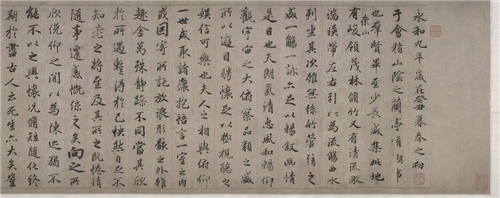 永和九年歲在癸丑暮春之初
于會稽山陰之蘭亭脩禊事
也群賢畢至少長咸集此地
崇山
有峻領茂林脩竹又有清流激
湍暎帶左右引以為流觴曲水
列坐其次雖無絲竹管弦之
盛一觴一詠亦足以暢叙幽情
是日也天朗氣清惠風和暢仰
觀宇宙之大俯察品類之盛
所以遊目騁懷足以極視聽之
娛信可樂也夫人之相與俯仰
一世或取諸懷抱悟言一室之內
或因寄所託放浪形骸之外雖
趣舍萬殊靜躁不同當其欣
於所遇蹔得於己怏然自足不
知老之將至及其所之既惓情
隨事遷感慨係之矣向之所
欣俛仰之閒以為陳迹猶不
能不以之興懷況脩短隨化終
期於盡古人云死生亦大矣豈